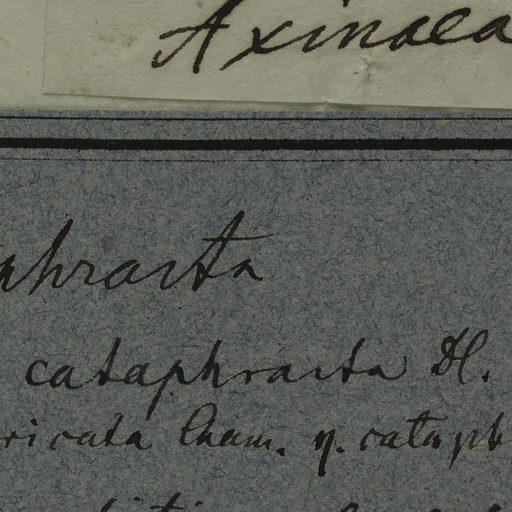 Axinaea
phracta
cataphracta Dl.
ricata Cham. η. cataph